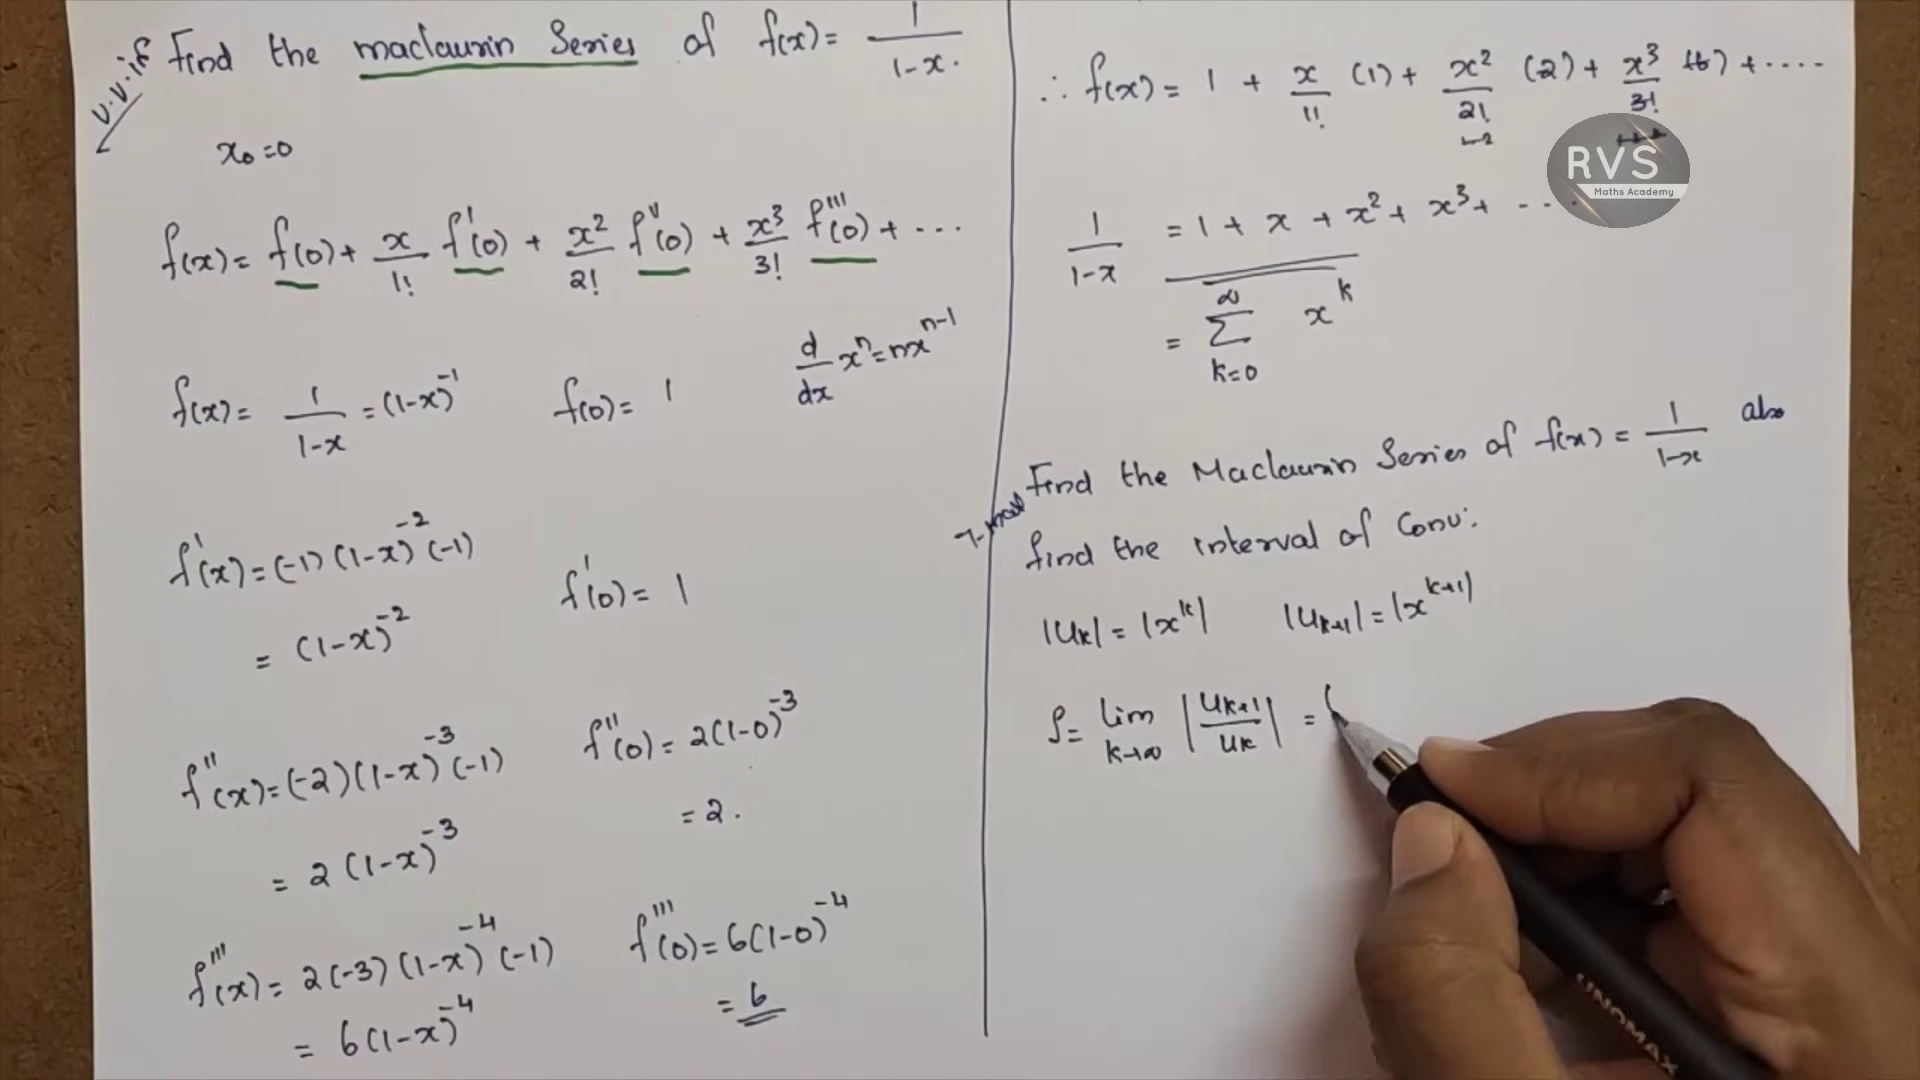 v.v.if Find the maclaurin Series of f(x) = 1/(1-x).
x₀=0
f(x) = f(0) + x/1! f'(0) + x²/2! f''(0) + x³/3! f'''(0) + ...
d/dx xⁿ = nxⁿ⁻¹
f(x) = 1/(1-x) = (1-x)⁻¹ f(0) = 1
f'(x) = (-1)(1-x)⁻²(-1)
= (1-x)⁻² f'(0) = 1
f''(x) = (-2)(1-x)⁻³(-1) f''(0) = 2(1-0)⁻³
= 2(1-x)⁻³ = 2.
f'''(x) = 2(-3)(1-x)⁻⁴(-1) f'''(0) = 6(1-0)⁻⁴
= 6(1-x)⁻⁴ = 6
∴ f(x) = 1 + x/1! (1) + x²/2! (2) + x³/3! (6) + ....
RVS
Maths Academy
1/(1-x) = 1 + x + x² + x³ + ....
= ∑_{k=0}^{∞} x^k
Find the Maclaurin Series of f(x) = 1/(1-x) also
find the interval of Conv:
|Uk| = |x^k| |Uk+1| = |x^{k+1}|
ρ = lim_{k→∞} |Uk+1/Uk| =
UNOMAX